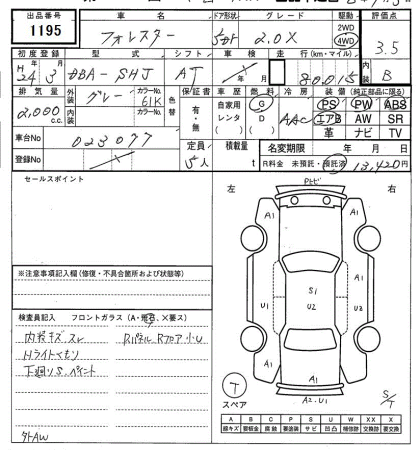 出品番号 車名 ドア形状 グレード 駆動 評価点
1195 フォレスター 5ドア 2.0X 2WD 4WD 3.5
初度登録 型式 シフト 車検 走行(km・マイル) 内装
H24 3月 DBA-SHJ AT 年 月 80,015 B
排気量 外装 グレー カラーNo. 61K 色替 保証書 車歴 燃料 冷房 装備(純正部品に限る)
2,000 c.c. 内装 カラーNo. 有・無 自家用 レンタ ( ) G D ( ) AAC PS PW ABS
エアB AW SR
革 ナビ TV
車台No 023077 定員 5人 積載量 t 名変期限 年 月 日
登録No R料金 未預託・預託済 13,420円
セールスポイント
左 右
A1 A1
U1 S1 U2 U1
A1 A1
A1
A2.U1
T
スペア
S/T
※注意事項記入欄(修復・不具合箇所および状態等)
検査員記入 フロントガラス(A・飛石、×要ス)
内装キズ スレ RパネルRフロア小U
Hライトくもり
下廻りS.ペイント
外AW
A B C P S U W X XX X
線キズ 要板金 腐蝕 要塗装 サビ 凹凸 補修跡 交換跡 要交換